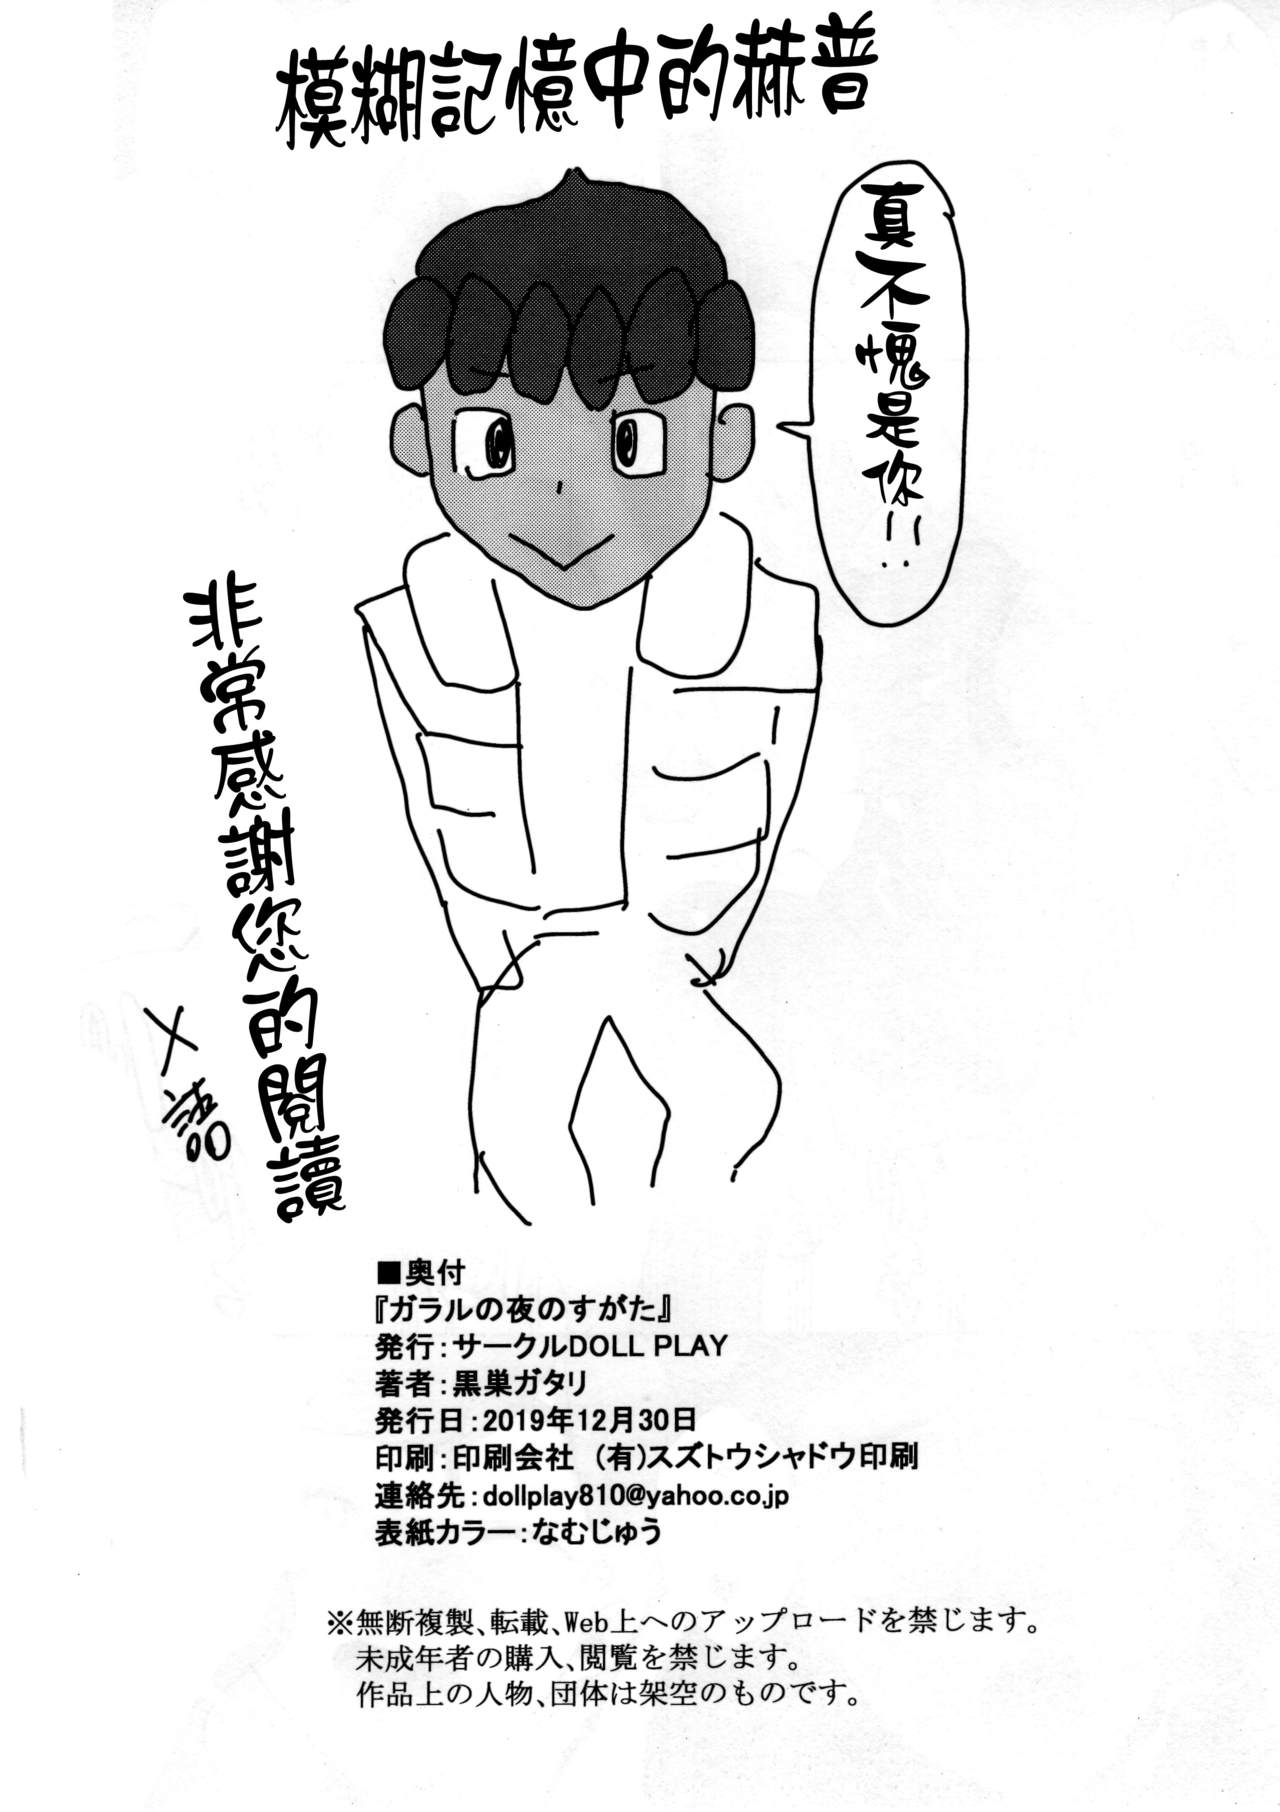 模糊記憶中的赫普
真不愧是你!!..
非常感謝您的閱讀
■奥付
『ガラルの夜のすがた』
発行：サークルDOLL PLAY
著者：黒巣ガタリ
発行日：2019年12月30日
印刷：印刷会社　(有)スズトウシャドウ印刷
連絡先：dollplay810@yahoo.co.jp
表紙カラー：なむじゅう
※無断複製、転載、Web上へのアップロードを禁じます。
未成年者の購入、閲覧を禁じます。
作品上の人物、団体は架空のものです。